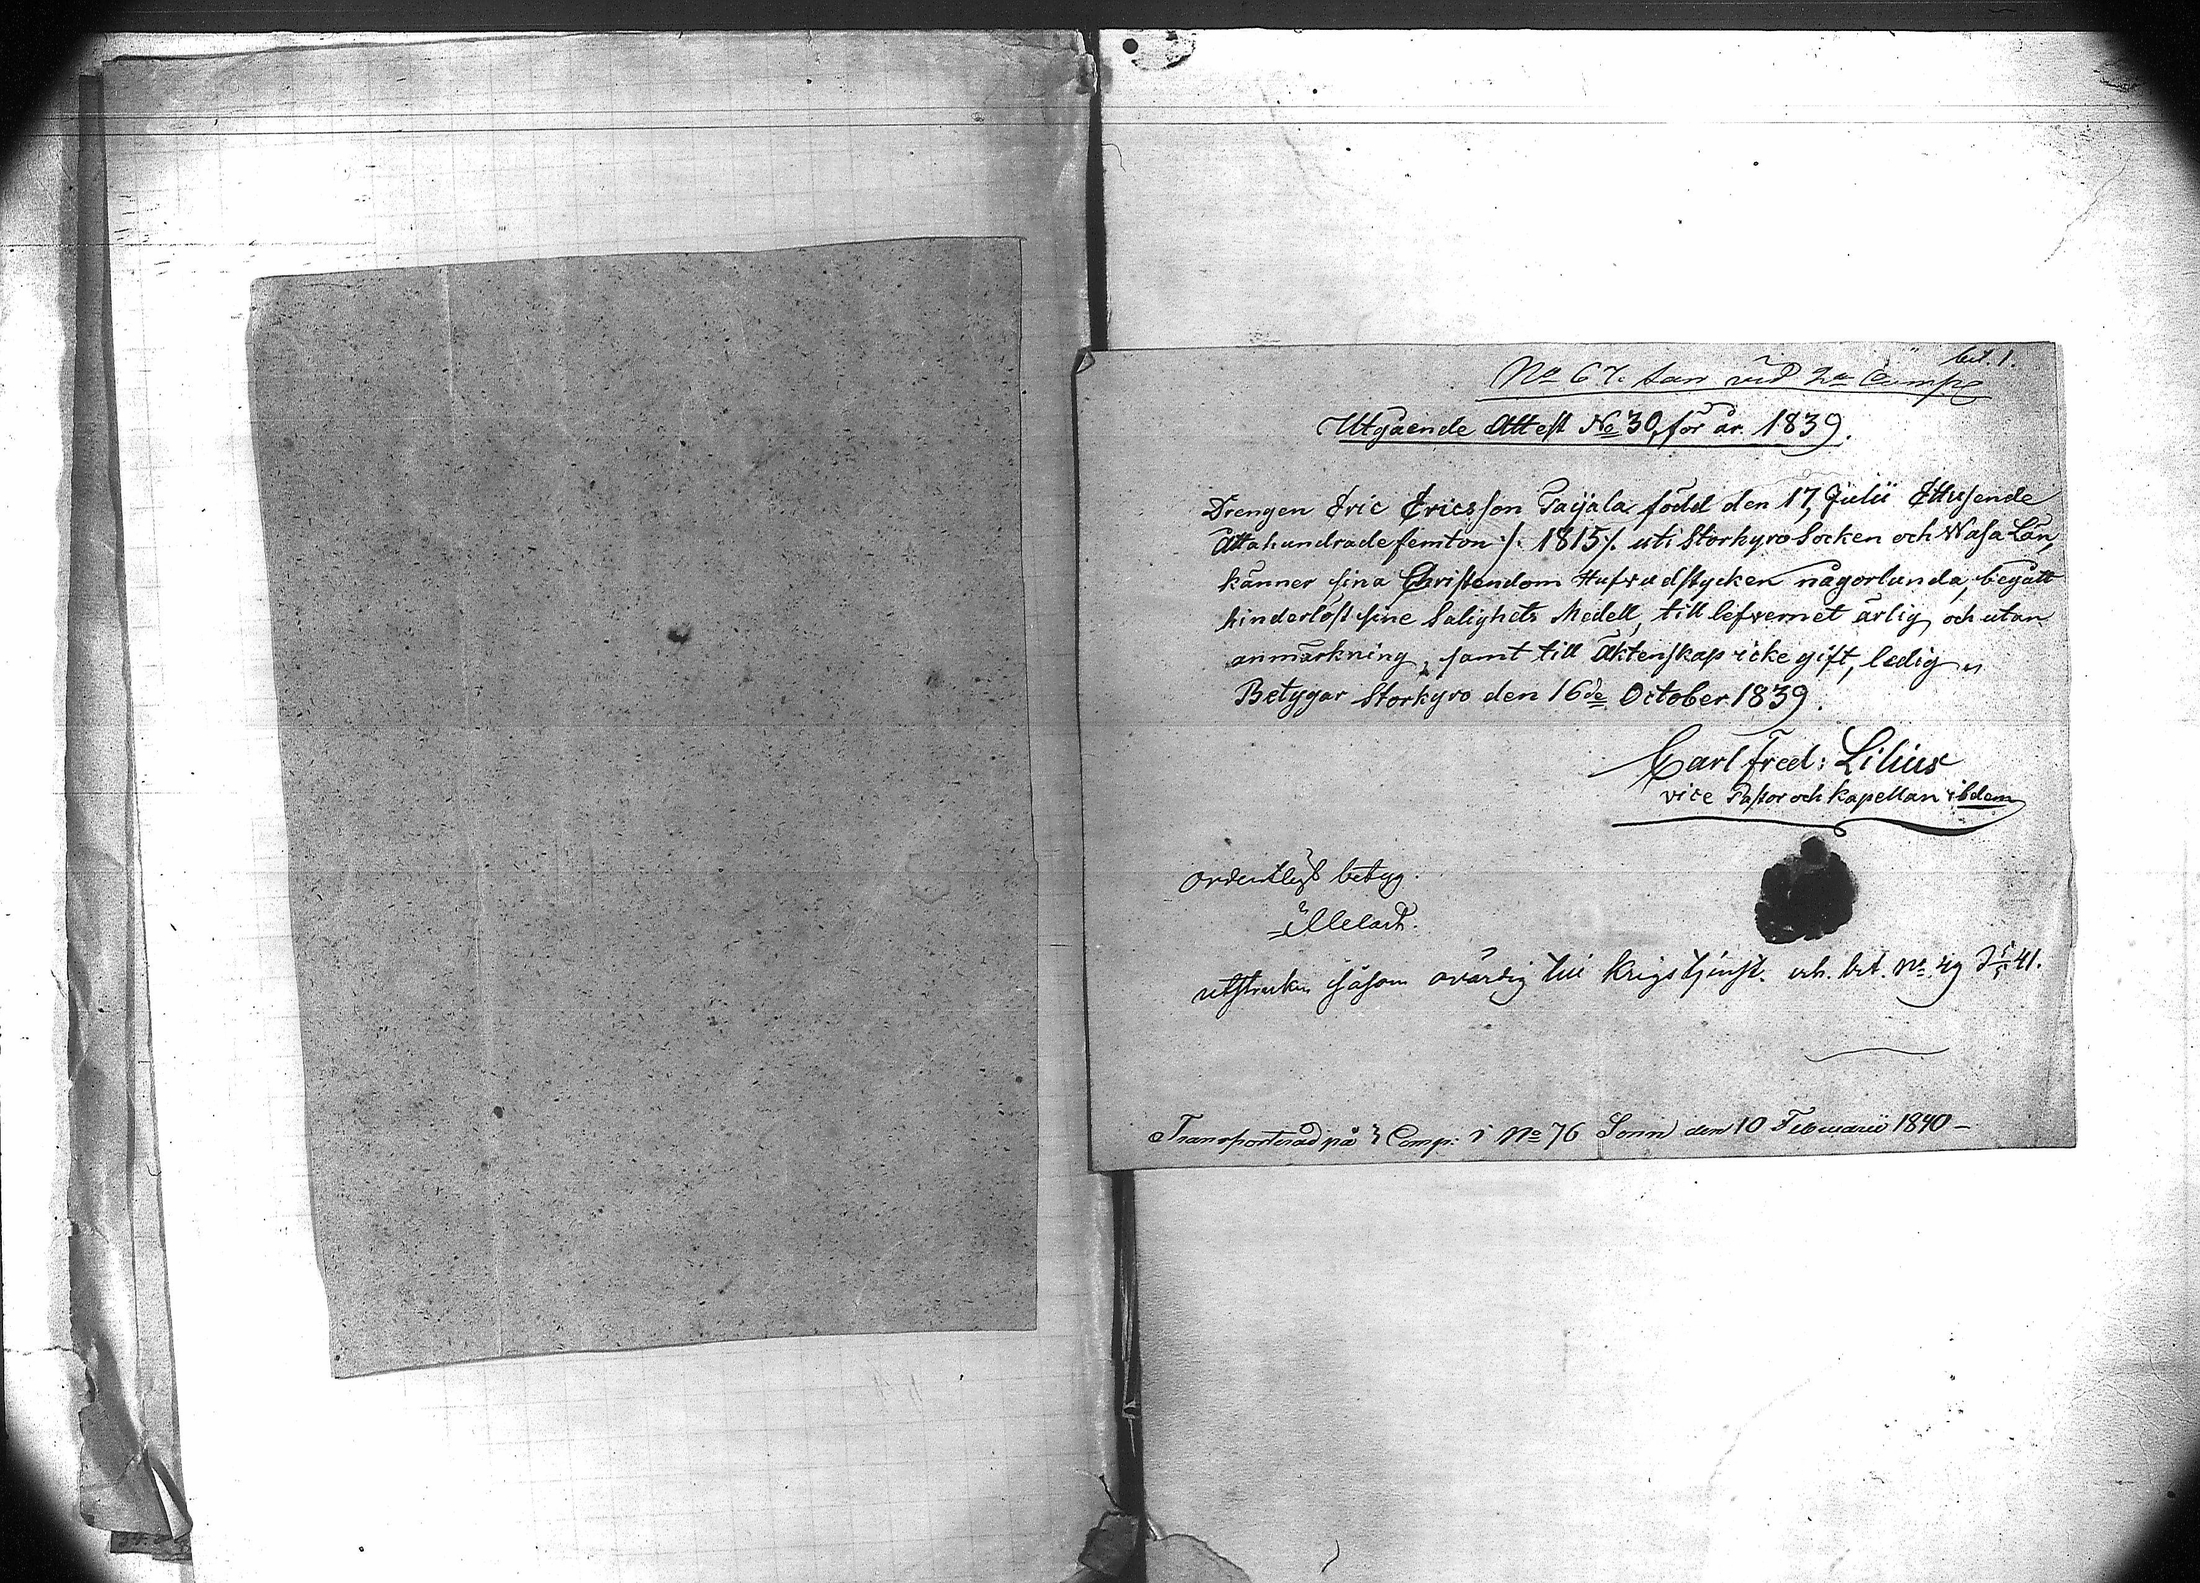 bet. 1.
No 67. vid 2a Comp
Utgående Attest No 30, för år 1839.
Drengen Eric Ericsson Taijala född den 17 Julii Ettusende
Åttahundrade femton /. 1815 /. uti Storkyro Socken och Wasa Län,
känner sina Christendom Hufvudstycken någorlunda, begått
hinderlöst sine Salighets Medell, till lefvernet ärlig, och utan
anmärkning, samt till Äktenskap icke gift, ledig
Betygar Storkyro den 16de October 1839.
Carl Fred: Lilius
vice Pastor och kapellan ibdem
ordentligt betyg.
utstruken såsom ovärdig till Krigstjenst. bet. No 49 41.
Transporterad på Comp: i No 76 den 10 Februarii 1840 –